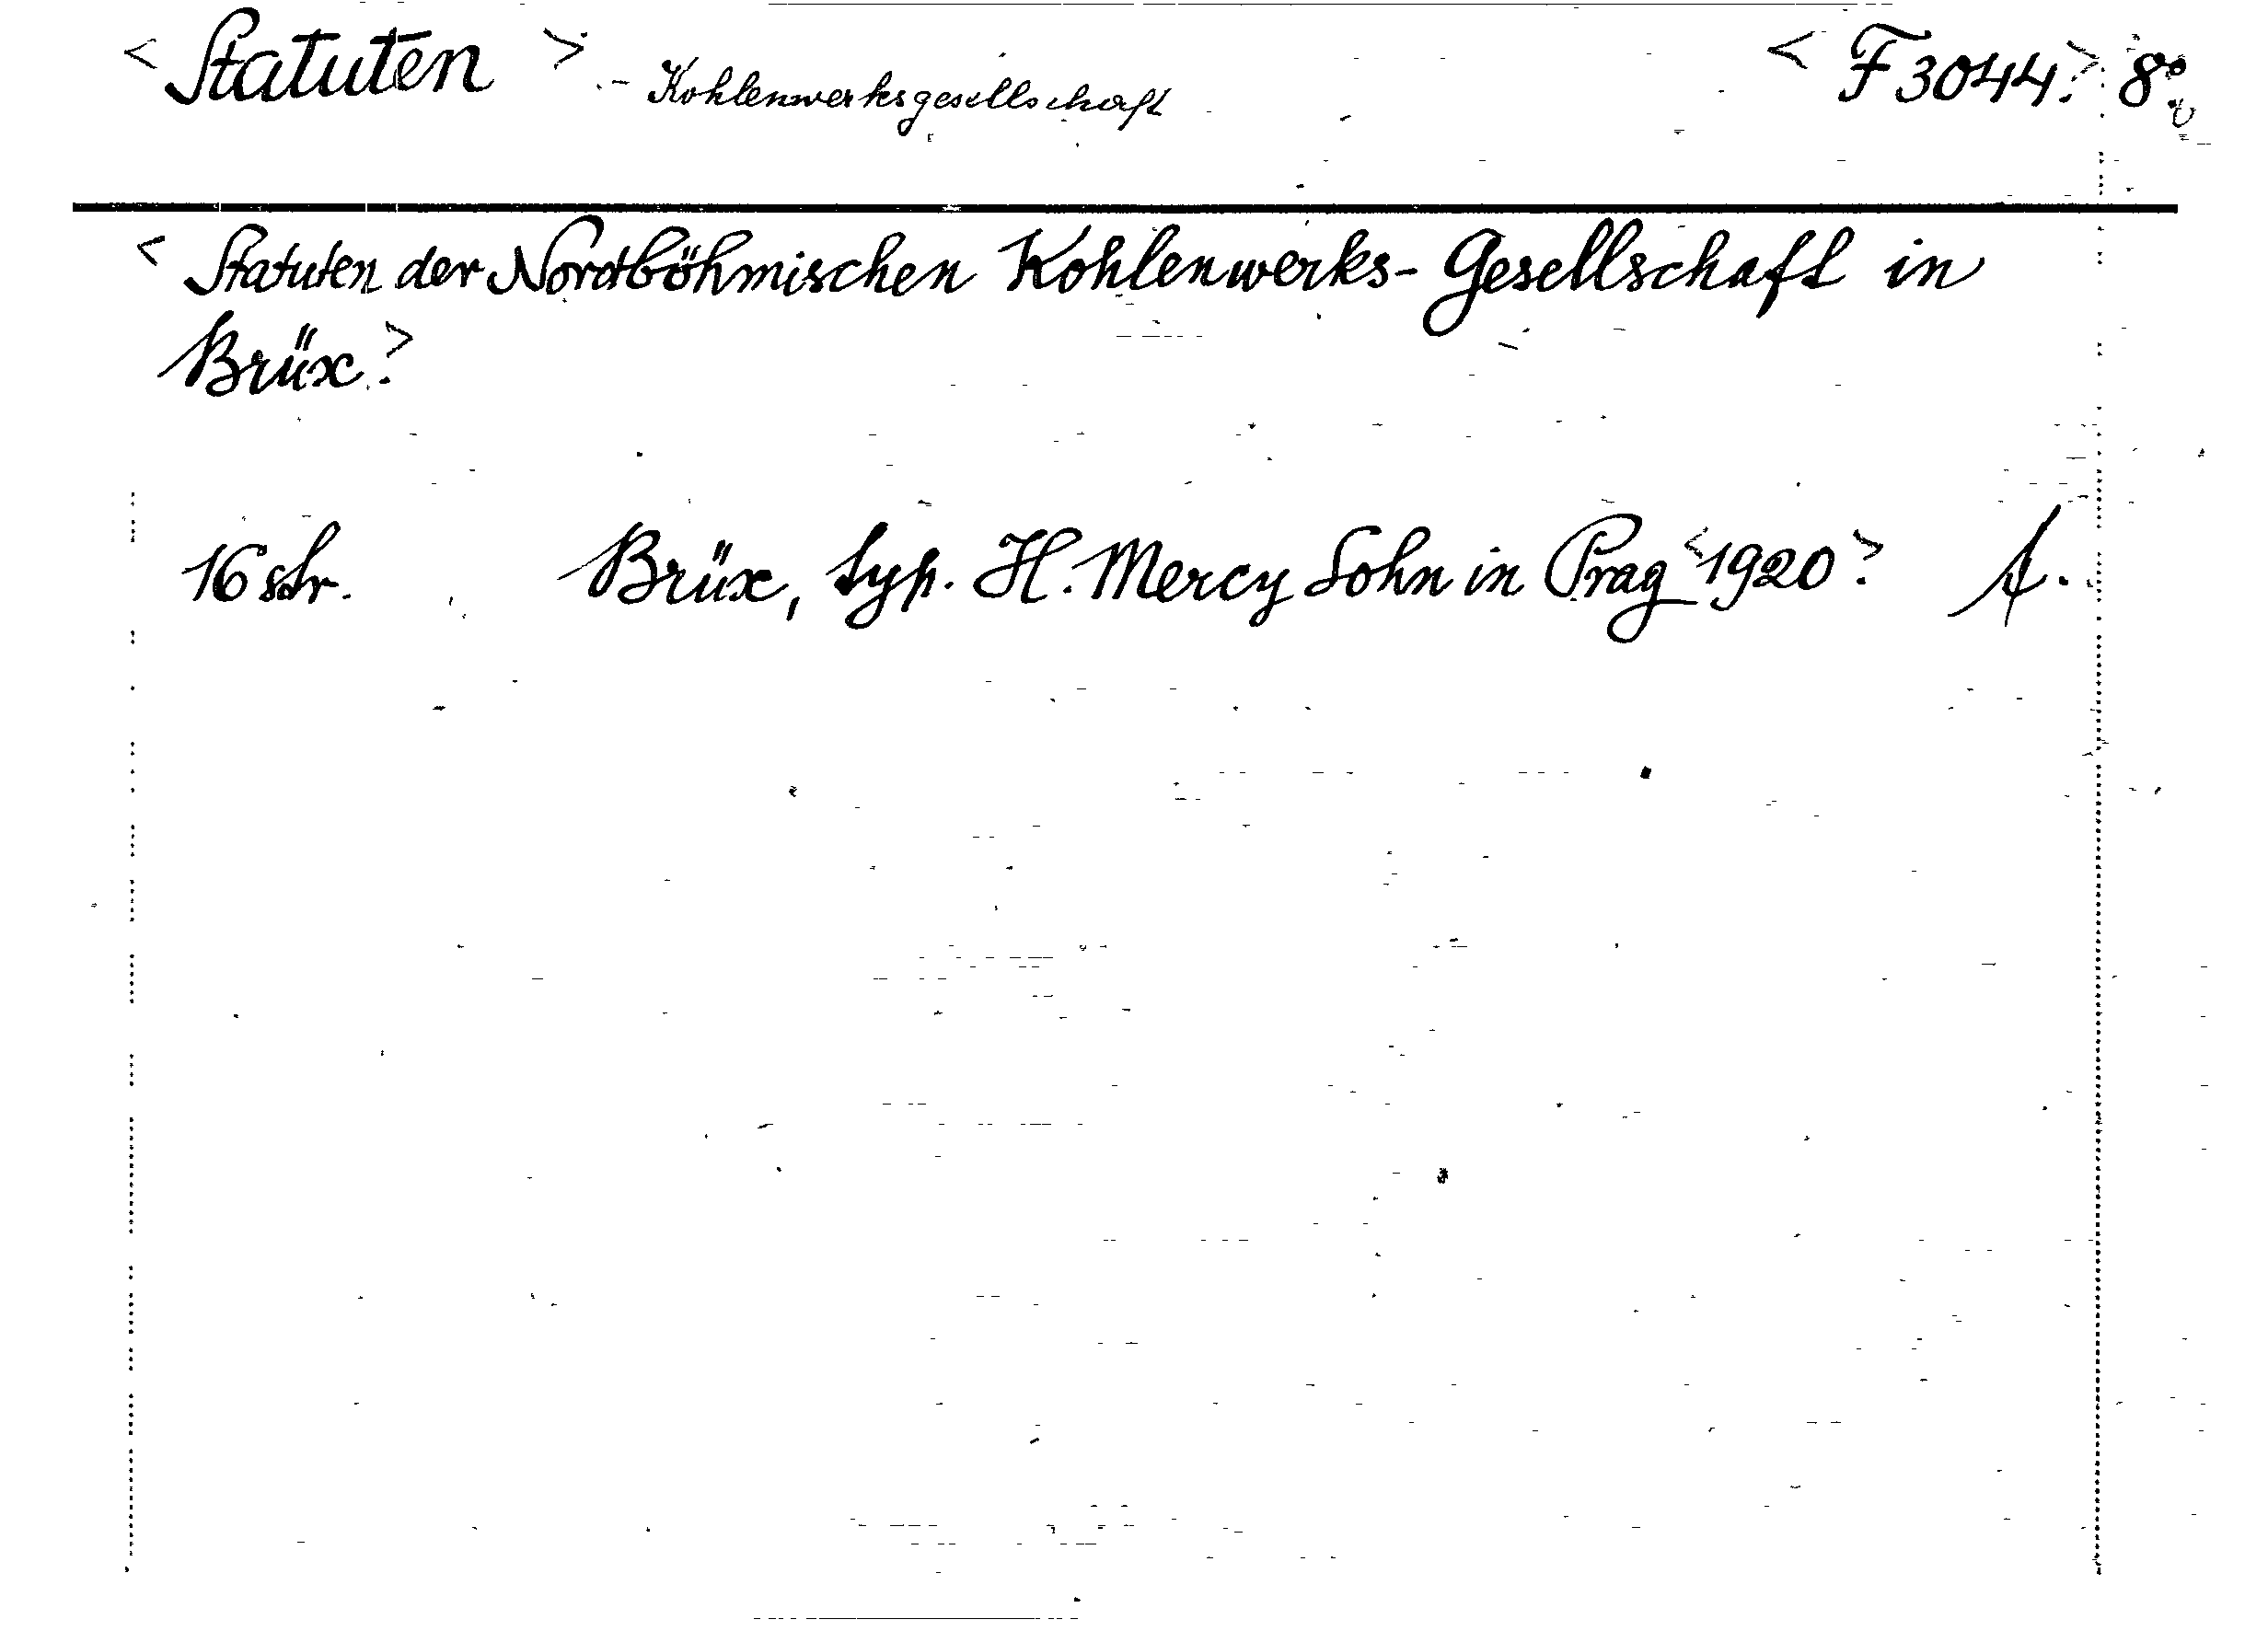 < Statuten > - Kohlenwerksgesellschaft < F 3044. > 8°
< Statuten der Nordböhmischen Kohlenwerks-Gesellschaft in
Brüx. >
16 str. Brüx, typ. H. Mercy Sohn in Prag <1920.>